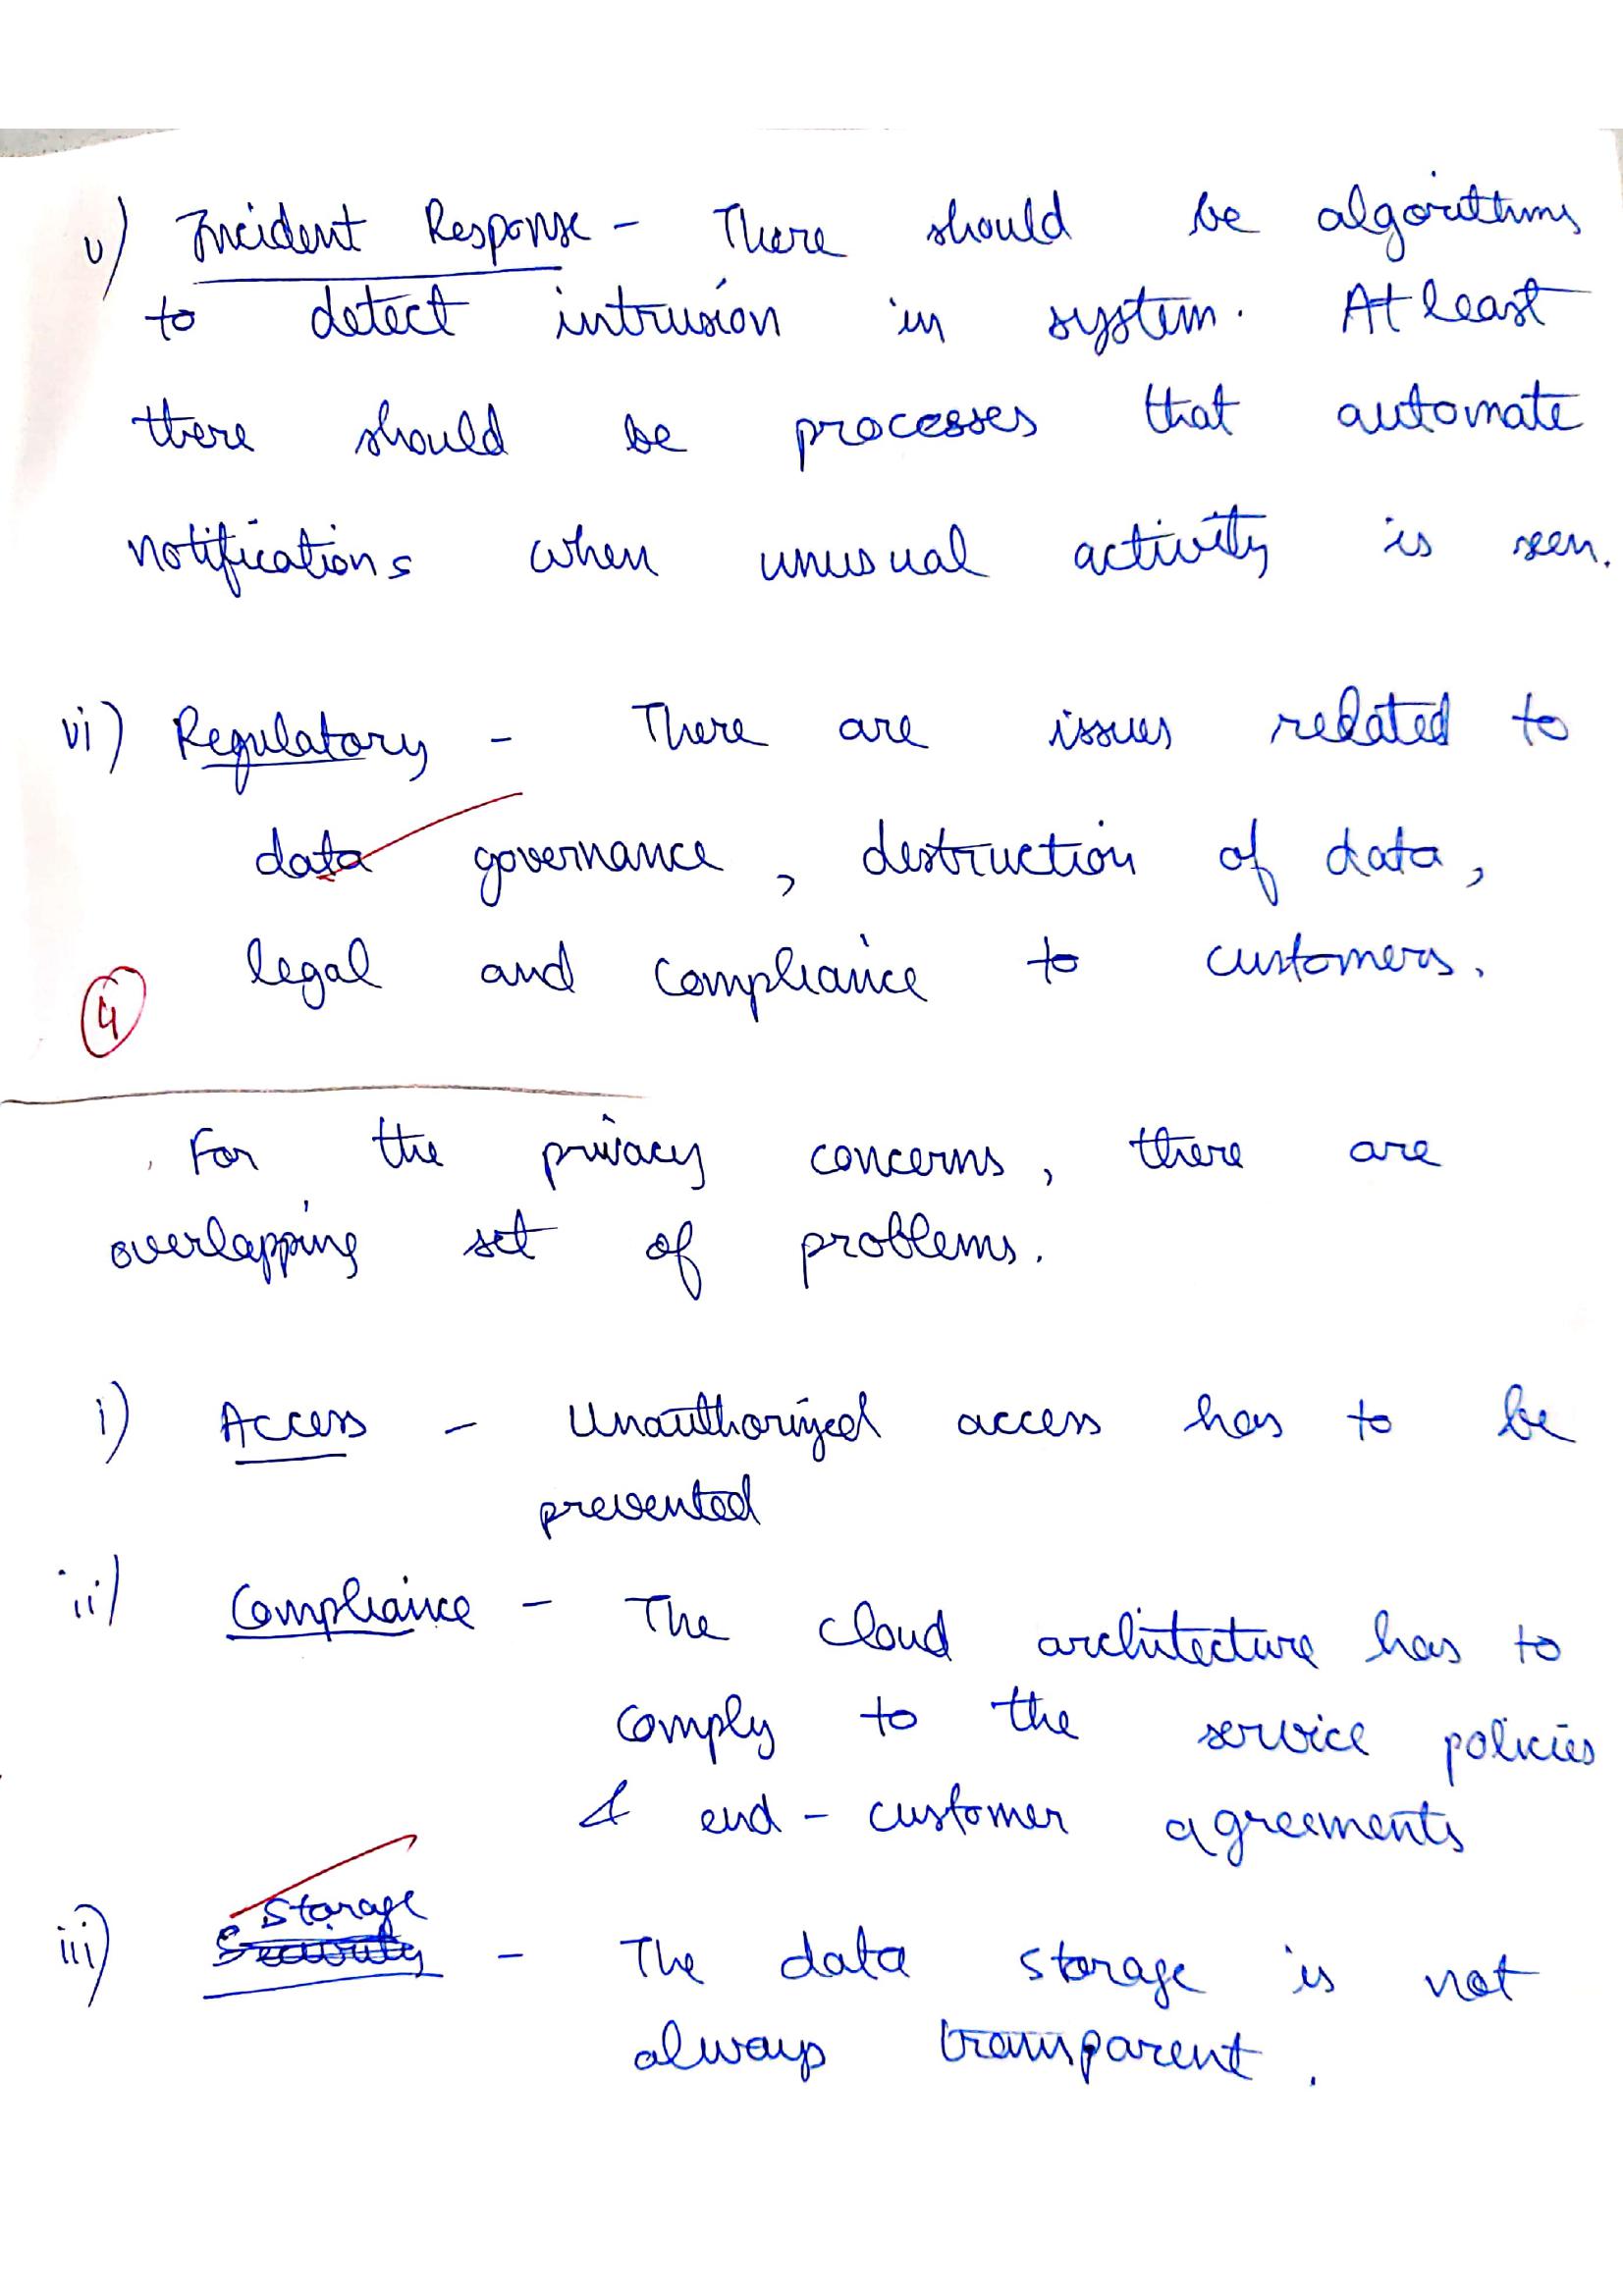 v) Incident Response - There should be algorithms
to detect intrusion in system. At least
there should be processes that automate
notifications when unusual activity is seen.
vi) Regulatory - There are issues related to
data governance, destruction of data,
legal and compliance to customers.
4
For the privacy concerns, there are
overlapping set of problems.
i) Access - Unauthorized access has to be
prevented
ii) Compliance - The cloud architecture has to
comply to the service policies
& end-customer agreements
Storage
iii) Security - The data storage is not
always transparent.